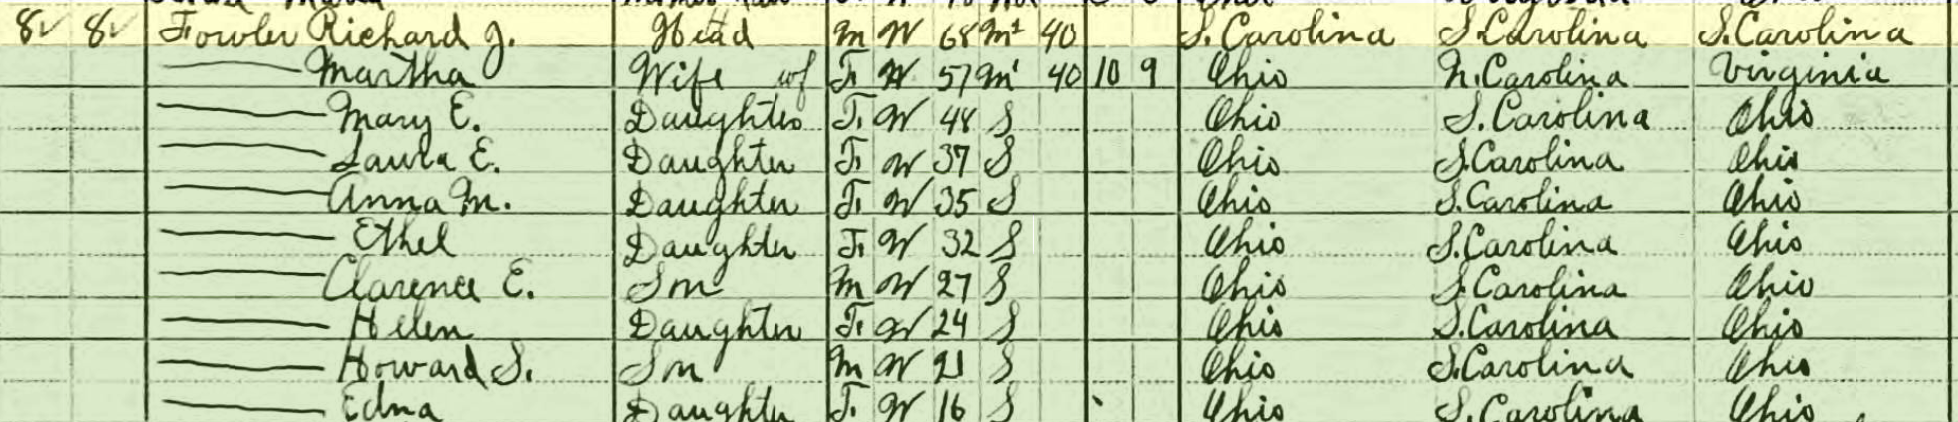 8✓ 8✓ Fowler Richard J. Head M W 68 M1 40 S. Carolina S. Carolina S. Carolina
—— Martha Wife wf F W 57 M1 40 10 9 Ohio N. Carolina Virginia
—— Mary E. Daughter F W 48 S Ohio S. Carolina Ohio
—— Laura E. Daughter F W 37 S Ohio S. Carolina Ohio
—— Anna M. Daughter F W 35 S Ohio S. Carolina Ohio
—— Ethel Daughter F W 32 S Ohio S. Carolina Ohio
—— Clarence E. Son M W 27 S Ohio S. Carolina Ohio
—— Helen Daughter F W 24 S Ohio S. Carolina Ohio
—— Howard S. Son M W 21 S Ohio S. Carolina Ohio
—— Edna Daughter F W 16 S Ohio S. Carolina Ohio